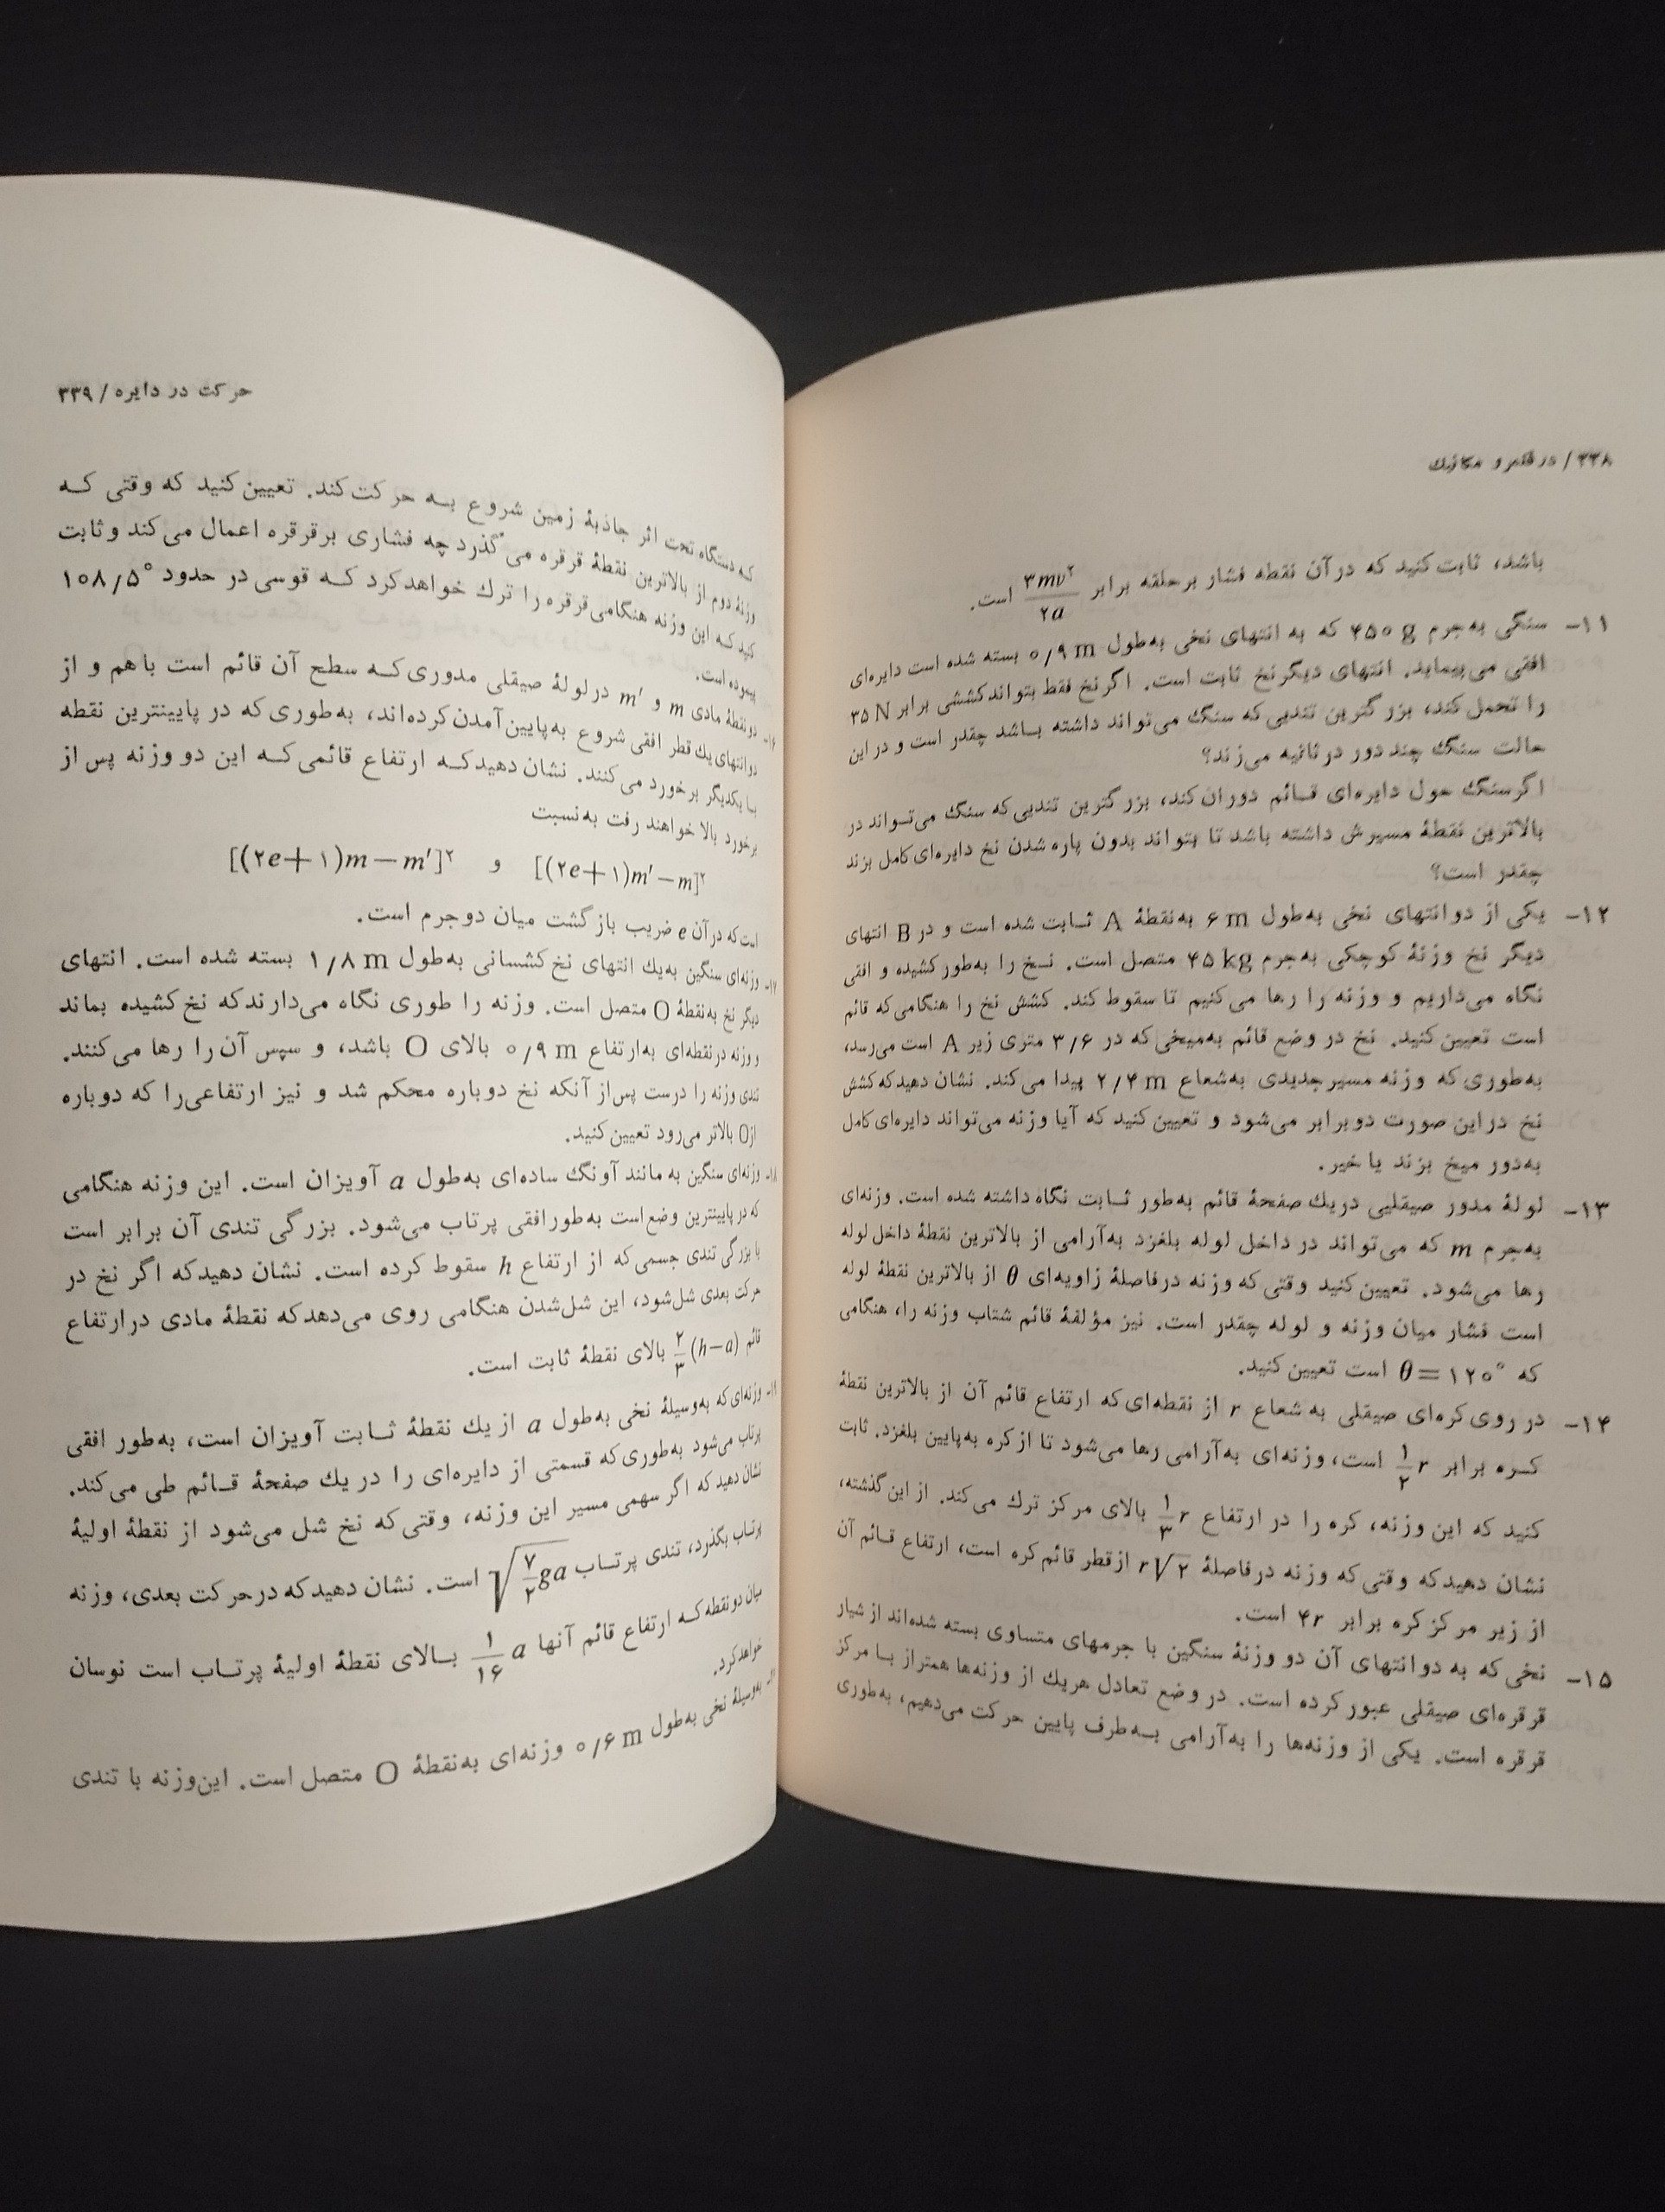 ۳۳۸/ در قلمرو مکانیک
باشد، ثابت کنید که در آن نقطه فشار بر حلقه برابر ۳mv²/۲a است.
۱۱- سنگی به‌جرم ۴۵۰ g که به انتهای نخی به‌طول ۰/۹ m بسته شده است دایره‌ای
افقی می‌پیماید. انتهای دیگر نخ ثابت است. اگر نخ فقط بتواند کششی برابر ۳۵ N
را تحمل کند، بزرگترین تندیی که سنگ می‌تواند داشته باشد چقدر است و در این
حالت سنگ چند دور در ثانیه می‌زند؟
اگر سنگ حول دایره‌ای قائم دوران کند، بزرگترین تندیی که سنگ می‌تواند در
بالاترین نقطهٔ مسیرش داشته باشد تا بتواند بدون پاره شدن نخ دایره‌ای کامل بزند
چقدر است؟
۱۲- یکی از دو انتهای نخی به‌طول ۶ m به‌نقطهٔ A ثابت شده است و در B انتهای
دیگر نخ وزنهٔ کوچکی به‌جرم ۴۵ kg متصل است. نخ را به‌طور کشیده و افقی
نگاه می‌داریم و وزنه را رها می‌کنیم تا سقوط کند. کشش نخ را هنگامی که قائم
است تعیین کنید. نخ در وضع قائم به‌میخی که در ۳/۶ متری زیر A است می‌رسد،
به‌طوری که وزنه مسیر جدیدی به‌شعاع ۲/۴ m پیدا می‌کند. نشان دهید که کشش
نخ در این صورت دو برابر می‌شود و تعیین کنید که آیا وزنه می‌تواند دایره‌ای کامل
به‌دور میخ بزند یا خیر.
۱۳- لولهٔ مدور صیقلیی در یك صفحهٔ قائم به‌طور ثابت نگاه داشته شده است. وزنه‌ای
به‌جرم m که می‌تواند در داخل لوله بلغزد به‌آرامی از بالاترین نقطهٔ داخل لوله
رها می‌شود. تعیین کنید وقتی که وزنه در فاصلهٔ زاویه‌ای θ از بالاترین نقطهٔ لوله
است فشار میان وزنه و لوله چقدر است. نیز مؤلفهٔ قائم شتاب وزنه را، هنگامی
که θ=۱۲۰° است تعیین کنید.
۱۴- در روی کره‌ای صیقلی به شعاع r از نقطه‌ای که ارتفاع قائم آن از بالاترین نقطهٔ
کره برابر ۱/۲ r است، وزنه‌ای به‌آرامی رها می‌شود تا از کره به‌پایین بلغزد. ثابت
کنید که این وزنه، کره را در ارتفاع ۱/۳ r بالای مرکز ترك می‌کند. از این گذشته،
نشان دهید که وقتی که وزنه در فاصلهٔ r√۲ از قطر قائم کره است، ارتفاع قائم آن
از زیر مرکز کره برابر ۴r است.
۱۵- نخی که به دو انتهای آن دو وزنهٔ سنگین با جرمهای متساوی بسته شده‌اند از شیار
قرقره‌ای صیقلی عبور کرده است. در وضع تعادل هریك از وزنه‌ها همتراز با مرکز
قرقره است. یکی از وزنه‌ها را به‌آرامی به‌طرف پایین حرکت می‌دهیم، به‌طوری
حرکت در دایره / ۳۳۹
که دستگاه تحت اثر جاذبهٔ زمین شروع به حرکت کند. تعیین کنید که وقتی که
وزنهٔ دوم از بالاترین نقطهٔ قرقره می‌گذرد چه فشاری بر قرقره اعمال می‌کند و ثابت
کنید که این وزنه هنگامی قرقره را ترك خواهد کرد که قوسی در حدود ۱۰۸/۵°
پیموده است.
۱۶- دو نقطهٔ مادی m و m′ در لولهٔ صیقلی مدوری که سطح آن قائم است با هم و از
دو انتهای یك قطر افقی شروع به‌پایین آمدن کرده‌اند، به‌طوری که در پایینترین نقطه
با یکدیگر برخورد می‌کنند. نشان دهید که ارتفاع قائمی که این دو وزنه پس از
برخورد بالا خواهند رفت به‌نسبت
[(۲e+۱)m′−m]² و [(۲e+۱)m−m′]²
است که در آن e ضریب بازگشت میان دو جرم است.
۱۷- وزنه‌ای سنگین به‌یك انتهای نخ کشسانی به‌طول ۱/۸ m بسته شده است. انتهای
دیگر نخ به‌نقطهٔ O متصل است. وزنه را طوری نگاه می‌دارند که نخ کشیده بماند
و وزنه در نقطه‌ای به‌ارتفاع ۰/۹ m بالای O باشد، و سپس آن را رها می‌کنند.
تندی وزنه را درست پس از آنکه نخ دوباره محکم شد و نیز ارتفاعی را که دوباره
از O بالاتر می‌رود تعیین کنید.
۱۸- وزنه‌ای سنگین به مانند آونگ ساده‌ای به‌طول a آویزان است. این وزنه هنگامی
که در پایینترین وضع است به‌طور افقی پرتاب می‌شود. بزرگی تندی آن برابر است
با بزرگی تندی جسمی که از ارتفاع h سقوط کرده است. نشان دهید که اگر نخ در
حرکت بعدی شل شود، این شل شدن هنگامی روی می‌دهد که نقطهٔ مادی در ارتفاع
قائم ۲/۳(h−a) بالای نقطهٔ ثابت است.
وزنه‌ای که به‌وسیلهٔ نخی به‌طول a از یك نقطهٔ ثابت آویزان است، به‌طور افقی
پرتاب می‌شود به‌طوری که قسمتی از دایره‌ای را در یك صفحهٔ قائم طی می‌کند.
نشان دهید که اگر سهمی مسیر این وزنه، وقتی که نخ شل می‌شود از نقطهٔ اولیهٔ
پرتاب بگذرد، تندی پرتاب √(۷/۲ ga) است. نشان دهید که در حرکت بعدی، وزنه
میان دو نقطه که ارتفاع قائم آنها ۱/۱۶ a بالای نقطهٔ اولیهٔ پرتاب است نوسان
خواهد کرد.
به‌وسیلهٔ نخی به‌طول ۰/۶ m وزنه‌ای به‌نقطهٔ O متصل است. این وزنه با تندی